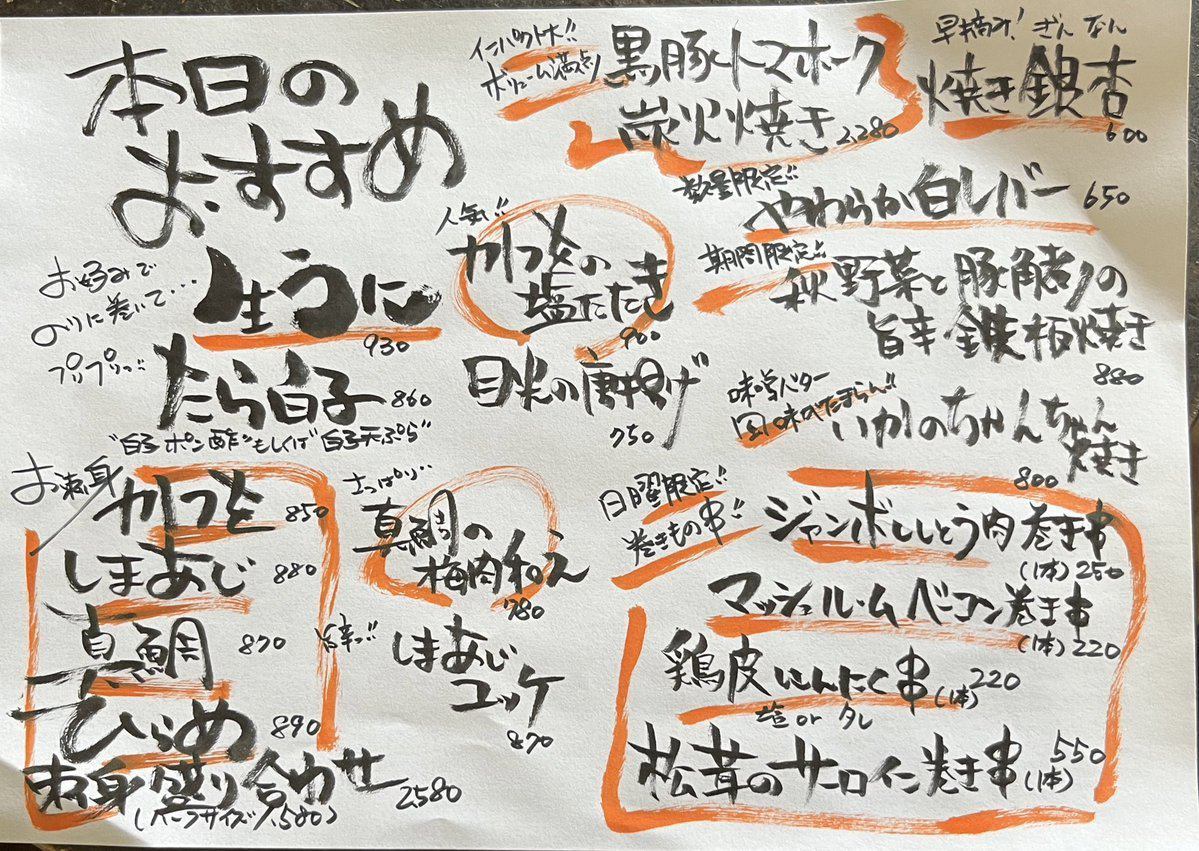 本日の
おすすめ
お好みで
のりに巻いて...
生うに
930
プリプリっ!!
たら白子 860
"白子ポン酢"もしくは"白子天ぷら"
お刺身
かつを 850
しまあじ 880
真鯛 870
ひらめ 890
刺身盛り合わせ 2,580
(ハーフサイズ 1,580)
人気!!
かつをの
塩たたき
900
目光の唐揚げ
750
さっぱり..
真鯛の
梅肉和え
780
旨辛っ!!
しまあじ
ユッケ
870
インパクト大!!
ボリューム満点!
黒豚トマホーク
炭火焼き 2,280
早摘み! ぎんなん
焼き銀杏
600
数量限定!!
やわらか白レバー 650
期間限定!!
秋野菜と豚角煮の
旨辛鉄板焼き
880
味噌バター
風味がたまらん!!
いかのちゃんちゃん
焼き
800
日曜限定!!
巻きもの串!!
ジャンボししとう肉巻き串
(1本) 250
マッシュルームベーコン巻き串
(1本) 220
鶏皮にんにく串 (1本) 220
塩 or タレ
松茸のサーロイン巻き串 550
(1本)